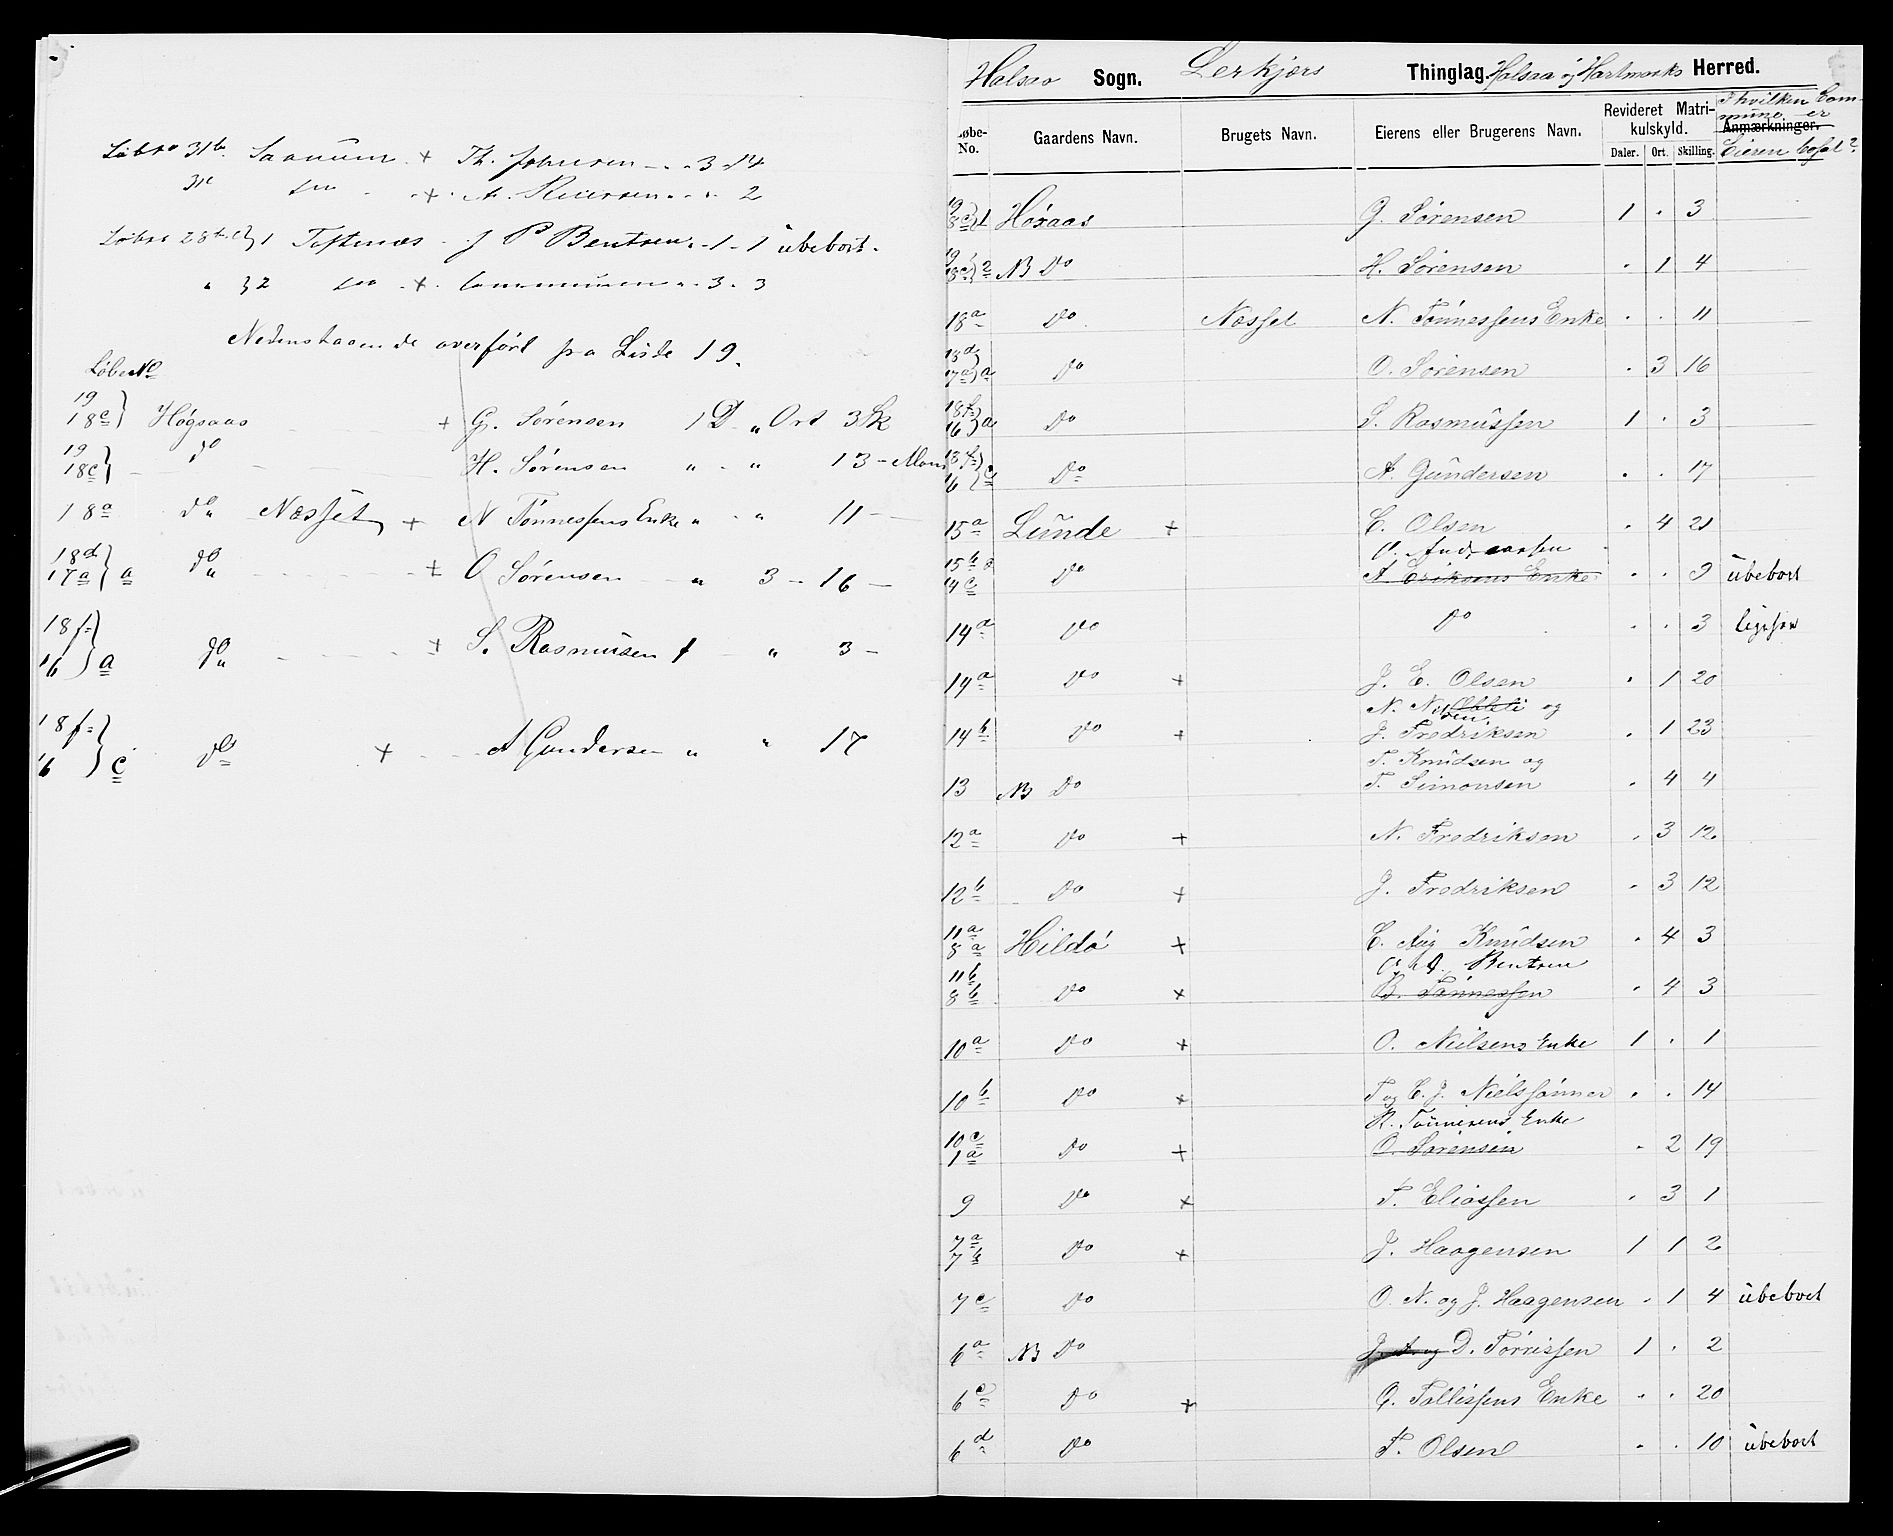 Løbno 31b. Saanum + Th. Johnsen - . - 3 . 14
31c do . . + . A. Reiersen . . . 2
Løbno 28 } 1 Toftenæs . J P Bentsen . - 1 - 1 ubeboet.
" } 2 do . + . Communen . . 3 . 3
Nedenstaaende overført fra Liste 19.
Løbe No
19 18c } Høgsaas + G. Sørensen 1 D " Ort 3 Sk
19 18c } do H. Sørensen " - " 13 -
18a do Næsset + N Tønnessens Enke " - " 11 -
18d 17a } a do + O Sørensen - " 3 - 16 -
18f 16 } a do + S. Rasmusen 1 - " 3 -
18f 16 } c do + A Gundersen " " 17
Halsaa Sogn. Lerkjærs Thinglag. Halsaa og Hartmarks Herred.
Løbe-No. Gaardens Navn. Brugets Navn. Eierens eller Brugerens Navn. Revideret Matrikulskyld. Daler. Ort. Skilling. Anmærkninger. I hvilken Commune er Eieren bosat?
19 18c } 1 Høxaas G. Sørensen 1 . 3
19 18c } 2 NB Do H. Sørensen . 1 4
18a Do Næsset N. Tønnessens Enke . . 11
18d 17a } a Do O. Sørensen . 3 16
18f 16 } a Do S. Rasmussen 1 . 3
18f 16 } c Do A. Gundersen . . 17
15a Lunde + C. Olsen . 4 21
O. Andreassen
15b 14c Do A. Eriksens Enke . . 9 ubeboet
14a Do Do . . 3 ligesaa
14a Do + J. E. Olsen . 1 20
N. Nilsen og
14b Do + J. Fredriksen . 1 23
T. Knudsen og
13 NB Do T. Simonsen . 4 4
12a Do + N. Fredriksen . 3 12.
12b Do + J. Fredriksen . 3 12
11a 8a Hildø + C. Aug Knudsen . 4 3
Bentsen
11b 8b Do + B. Tønnessen . 4 3
10a Do + O. Nielsens Enke 1 . 1
10b Do + T og C. J. Nielssønner . . 14
R. Tønnesens Enke
10c 1a Do + O. Sørensen . 2 19
9 Do + T. Eliassen . 3 1
7a 7b Do + J. Haagensen 1 1 2
7c Do O. N. og J. Haagensen . 1 4 ubeboet
6a NB Do J. A. og D. Tørrissen 1 . 2
6c Do + G. Tallissens Enke . . 20
6d Do T. Olsen . . 10 ubeboet